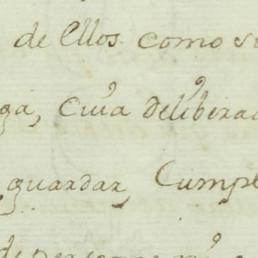 de Ellos como si
ga, cuia deliberac
guardar, Cumpl
de